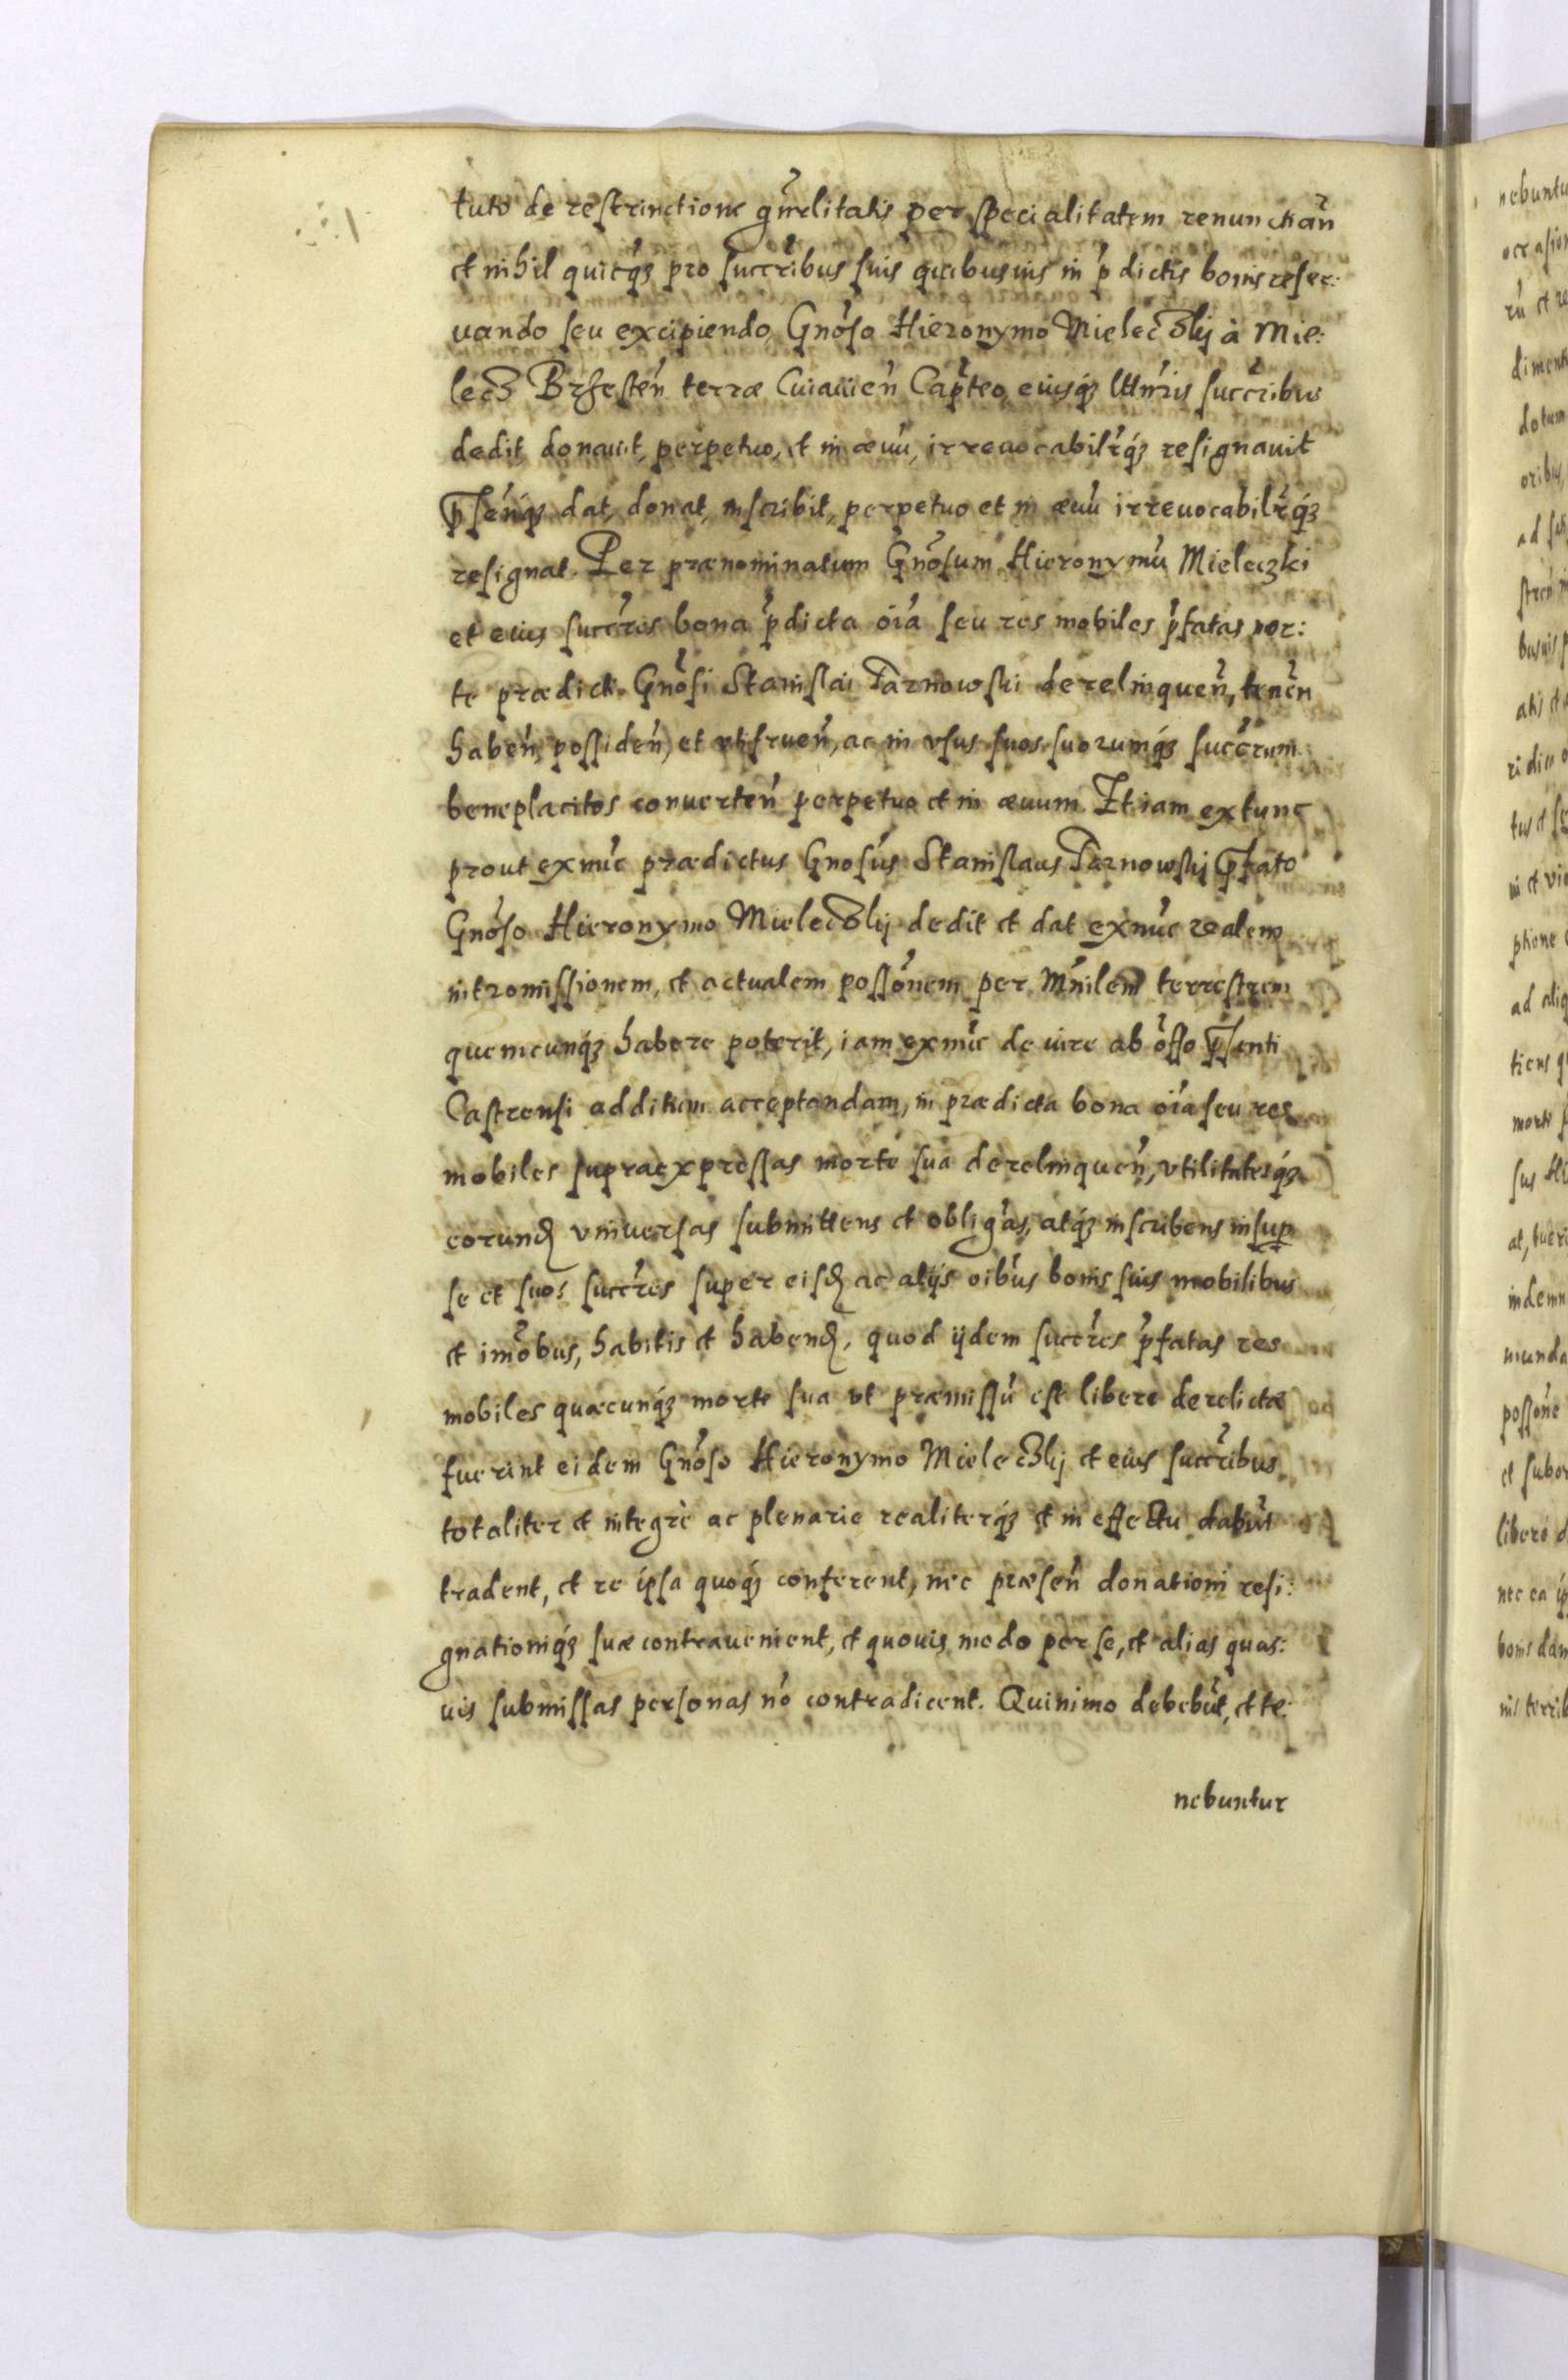 tuto de restrinctione gnrãlitatis per specialitatem renunctiañ
et nihil quicq́ȝ pro succr̃ibus suis quibusuis in p̃dictis bonis reser:
uando seu excipiendo, Gnõso Hieronymo Mieleczkij à Mie:
lecz Brzesteñ terræ Cuiauieñ Cap̃teo, eiusq́ȝ lttñris succr̃ibus
dedit, donauit, perpetuo, et in æuũ, irreuocabilr̃q́ȝ resignauit
p̃señq́ȝ dat, donat, inscribit, perpetuo et in æuũ irreuocabilr̃q́ȝ
resignat. Per prænominatum Gnõsum Hieronymũ Mieleczki
et eius succr̃es bona p̃dicta oĩa seu res mobiles p̃fatas mor:
te prædicti Gnõsi Stanislai Tarnowski derelinqueñ, teneñ
habeñ, possideñ, et vtifrueñ, ac in vsus suos suorumq́ȝ succr̃um
beneplacitos conuerteñ perpetuo et in æuum. Et iam extunc
prout exnũc prædictus Gnosũs Stanislaus Tarnowskij p̃fato
Gnõso Hieronymo Mieleczkij dedit et dat exnũc realem
intromissionem, et actualem possõnem per Mñilem terrestrem
quemcunq́ȝ habere poterit, iam exnũc de iure ab offõ p̃senti
Castrensi additum acceptandam, in prædicta bona oĩa seu res
mobiles supraexpressas morte sua derelinqueñ, vtilitatesq́ȝ
eorund̃ vniuersas submittens et obligãs, atq́ȝ inscribens insup̱
se et suos succr̃es super eisd̃ ac alijs oibũs bonis suis mobilibus
et imõbus, habitis et habend̃, quod ijdem succr̃es p̃fatas res
mobiles quæcunq́ȝ morte sua vt præmissũ est libere derelictæ
fuerint eidem Gnõso Hieronymo Mieleczkij et eius succr̃ibus
totaliter et integrè ac plenarie realiterq́ȝ et in effectu dabũt
tradent, et re ipsa quoq́ȝ conferent, nec præseñ donationi resi:
gnationiq́ȝ suæ contrauenient, et quouis modo per se, et alias quas:
uis submissas personas nõ contradicent. Quinimo debebũt, et te:
nebuntur